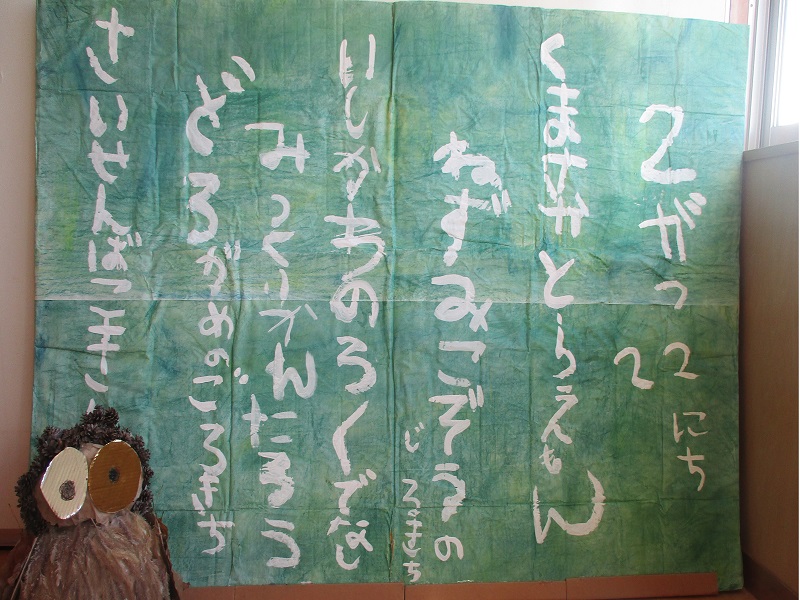 2がつ 22にち
くまさか とらえもん
ねずみこぞうの じろきち
いしかわのろくでなし
みつくりかんたろう
どろがめのごろきち
さいせんば